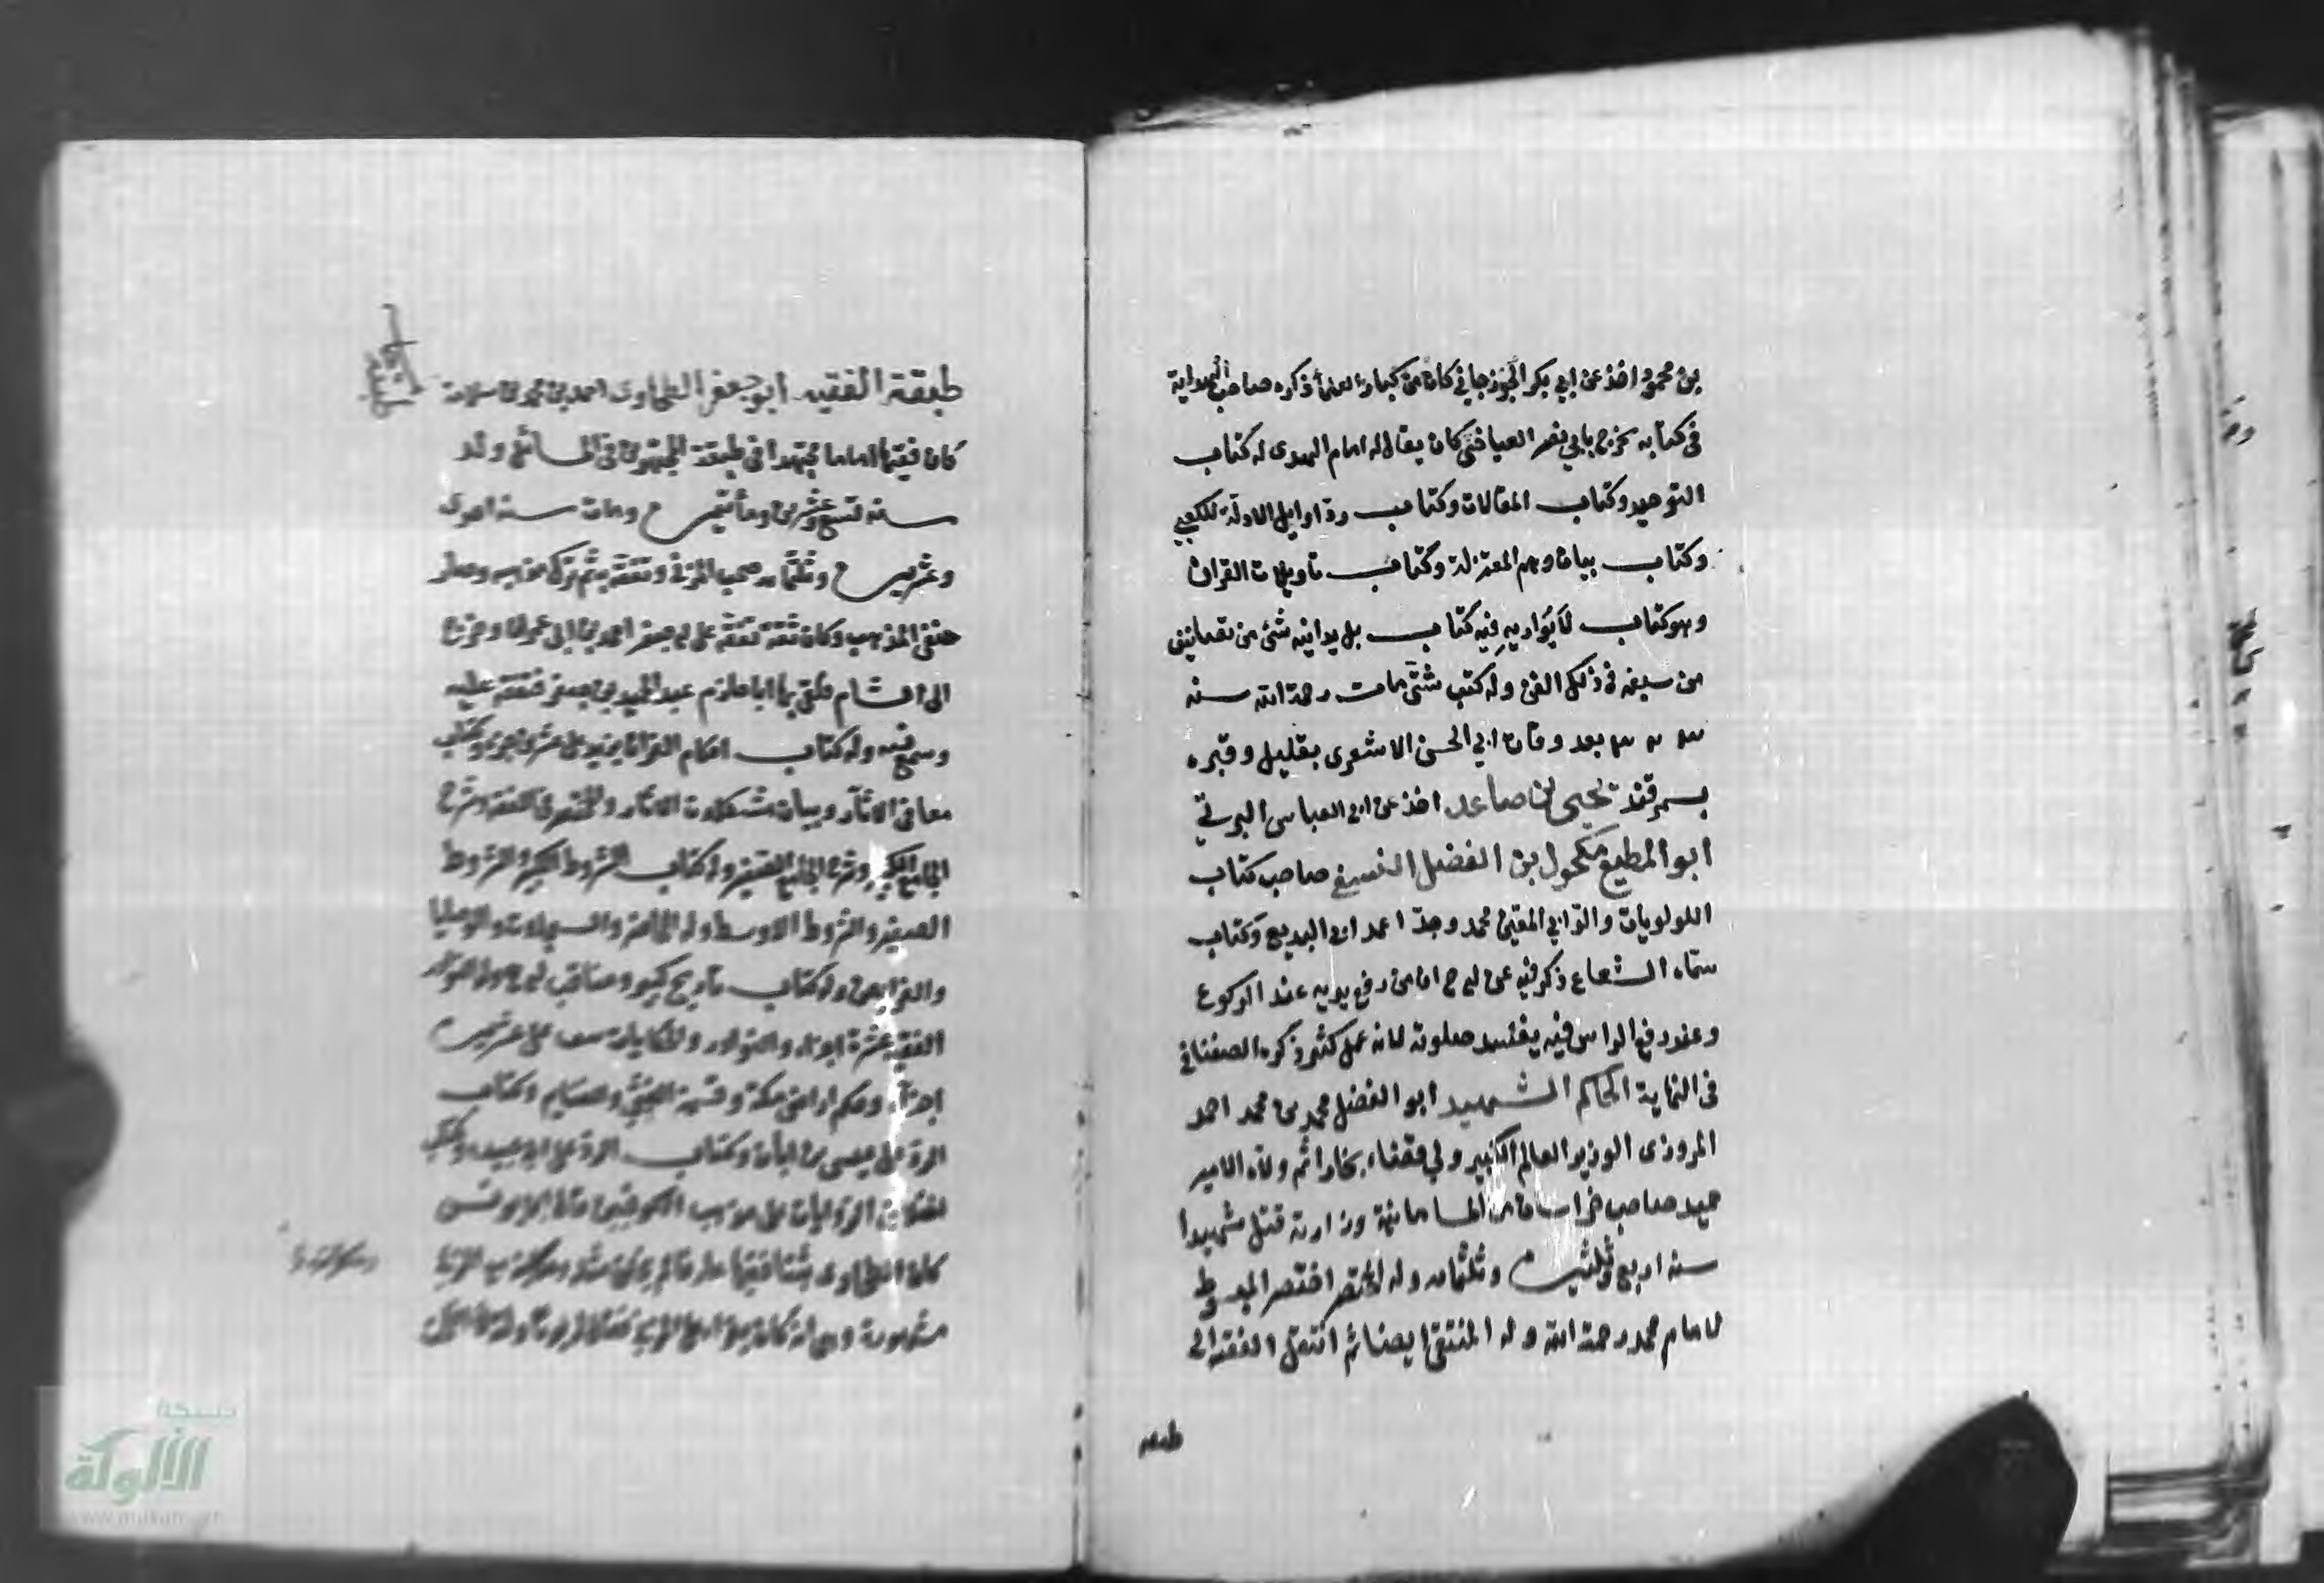 بن محمود اخذ عن ابي بكر الجوزجاني كان من كبار العلماء ذكره صاحب الهداية
في كتابه تخرج بابي نصر العياضي كان يقال له امام الهدى له كتاب
التوحيد وكتاب المقالات وكتاب رد اوايل الادلة للكعبي
وكتاب بيان وهم المعتزلة وكتاب تاويلات القران
وهو كتاب لا يوازيه فيه كتاب بل يدانيه شئ من تصانيف
من سبقه في ذلك الفن وله كتب شتى مات رحمة الله سنه
بعد وفات ابي الحسن الاشعري بقليل وقبره
بسمرقند يحيى بن صاعد اخذ عن ابي العباس البرتي
ابو المطيع مكحول بن الفضل النسفي صاحب كتاب
اللولويات والد ابي المعين محمد وجد احمد ابي البديع وكتاب
سماه الشعاع ذكر فيه عن ابي ح ان من رفع يديه عند الركوع
وعند رفع الراس فيه يفسد صلوته لانه عمل كثير ذكره الصغناقي
في النهاية الحاكم الشهيد ابو الفضل محمد بن محمد احمد
المروزي الوزير العالم الكبير ولي قضاء بخارا ثم ولاه الامير
حميد صاحب خراسان من السامانية وزارته قتل شهيدا
سنه اربع وثلثين وثلثمايه وله المختصر اختصر المبسوط
للامام محمد رحمة الله وله المنتقى ايضا ثم انتقل الفقه الى
طبقة
طبقة الفقيه ابو جعفر الطحاوي احمد بن محمد بن سلامة
كان فقيها اماما مجتهدا في طبقة المجتهدين في المسائل ولد
سنه تسع وعشرين ومأتين ومات سنه احدى
وعشرين وثلثمايه صحب المزني وتفقه به ثم ترك مذهبه وصار
حنفي المذهب وكان ثقة تفقه على ابي جعفر احمد بن ابي عمران وخرج
الى الشام فلقي بها ابا حازم عبد الحميد بن جعفر فتفقه عليه
وسمع منه وله كتاب احكام القران يزيد على عشرين جزء وكتاب
معاني الاثار وبيان مشكلات الاثار والمختصر في الفقه وشرح
الجامع الكبير وشرح الجامع الصغير وله كتاب الشروط الكبير والشروط
الصغير والشروط الاوسط وله المحاضر والسجلات والوصايا
والفرايض وله كتاب تاريخ كبير ومناقب ابي ح وله النوادر
الفقهية عشرة اجزاء والنوادر والحكايات على عشرين
اجزاء وحكم اراضي مكة وقسمة الفئ والغنايم وكتاب
الرد على عيسى بن ابان وكتاب الرد على ابي عبيد وكتاب
اختلاف الروايات على مذهب الكوفيين قال ابن يونس
كان الطحاوي ثقة فقيها عاقلا لم يخلف مثله